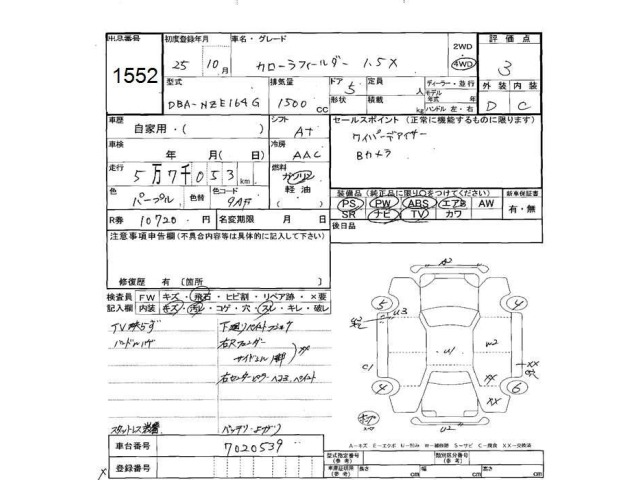 出品番号 初度登録年月 車名・グレード 評価点
1552 25年 10月 カローラフィールダー 1.5X 2WD 4WD 3
型式 排気量 ドア 5 定員 人 ディーラー・並行 外装 内装
DBA-NZE164G 1500CC 形状 積載 kg モデル年式 年 ハンドル 左・右 D C
車歴 自家用・( ) シフト AT セールスポイント (正常に機能するものに限ります)
車検 年 月(日) 冷房 AAC ワイパーデアイサー
Bカメラ
走行 5万7千053km 燃料 ガソリン 軽油
色 パープル 色替 色コード 9AF 装備品(純正品に限り○をつけてください) 新車保証書
PS PW ABS エアB AW 有・無
SR ナビ TV カワ
R券 10720円 名変期限 月 日 後日品
注意事項申告欄(不具合内容等は具体的に記入して下さい)
修復歴 有 〔箇所 〕
検査員 FW キズ・飛石・ヒビ割・リペア跡・×要
記入欄 内装 キズ・汚れ・コゲ・穴・スレ・キレ・破レ
A2
5 4
U3
C1 U1 W2 XX
4 6
XX
XX
U2
スタットレス装着 バッテリーよわり
A-キズ E-エクボ U-凹み W-補修跡 S-サビ C-腐食 XX-交換済
車台番号 7020539
登録番号
型式指定番号(参考) 類別区分番号(参考)
車庫証明用(参考) 長さ cm 幅 cm 高さ cm